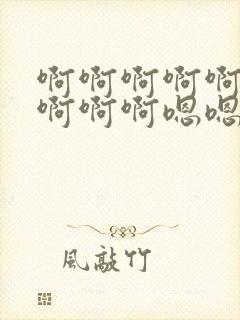 啊啊啊啊啊
啊啊啊嗯嗯
風敲竹